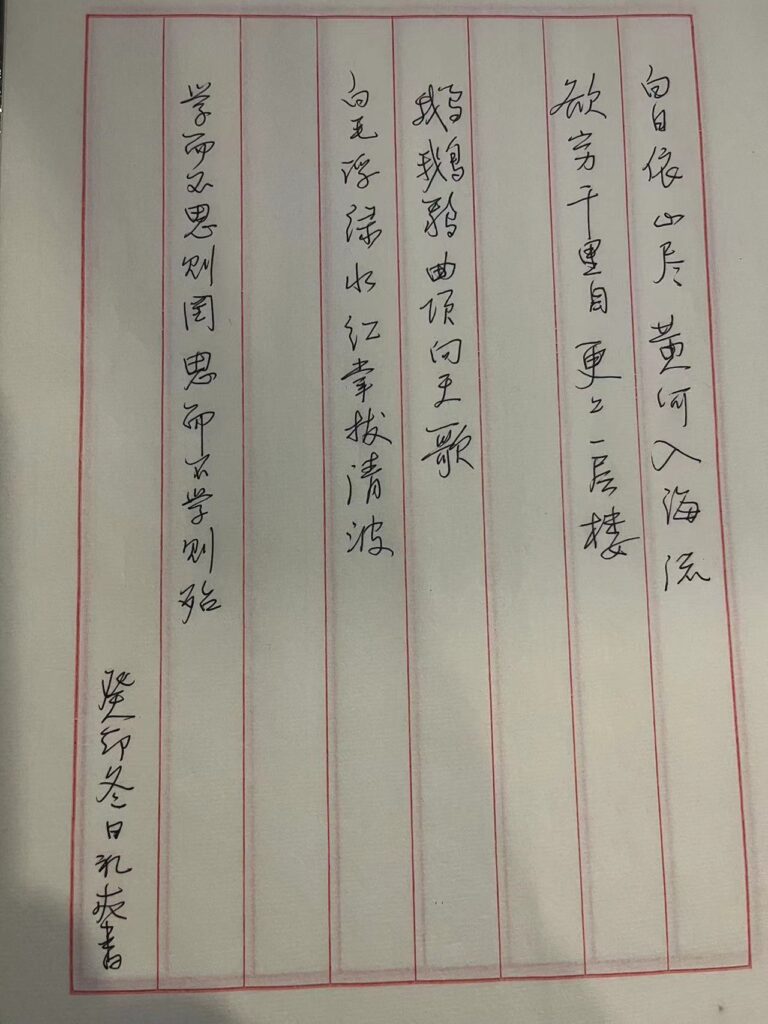 白日依山尽黄河入海流
欲穷千里目更上一层楼
鹅鵝鵞曲项向天歌
白毛浮绿水红掌拨清波
学而不思则罔思而不学则殆
癸卯冬日礼 书